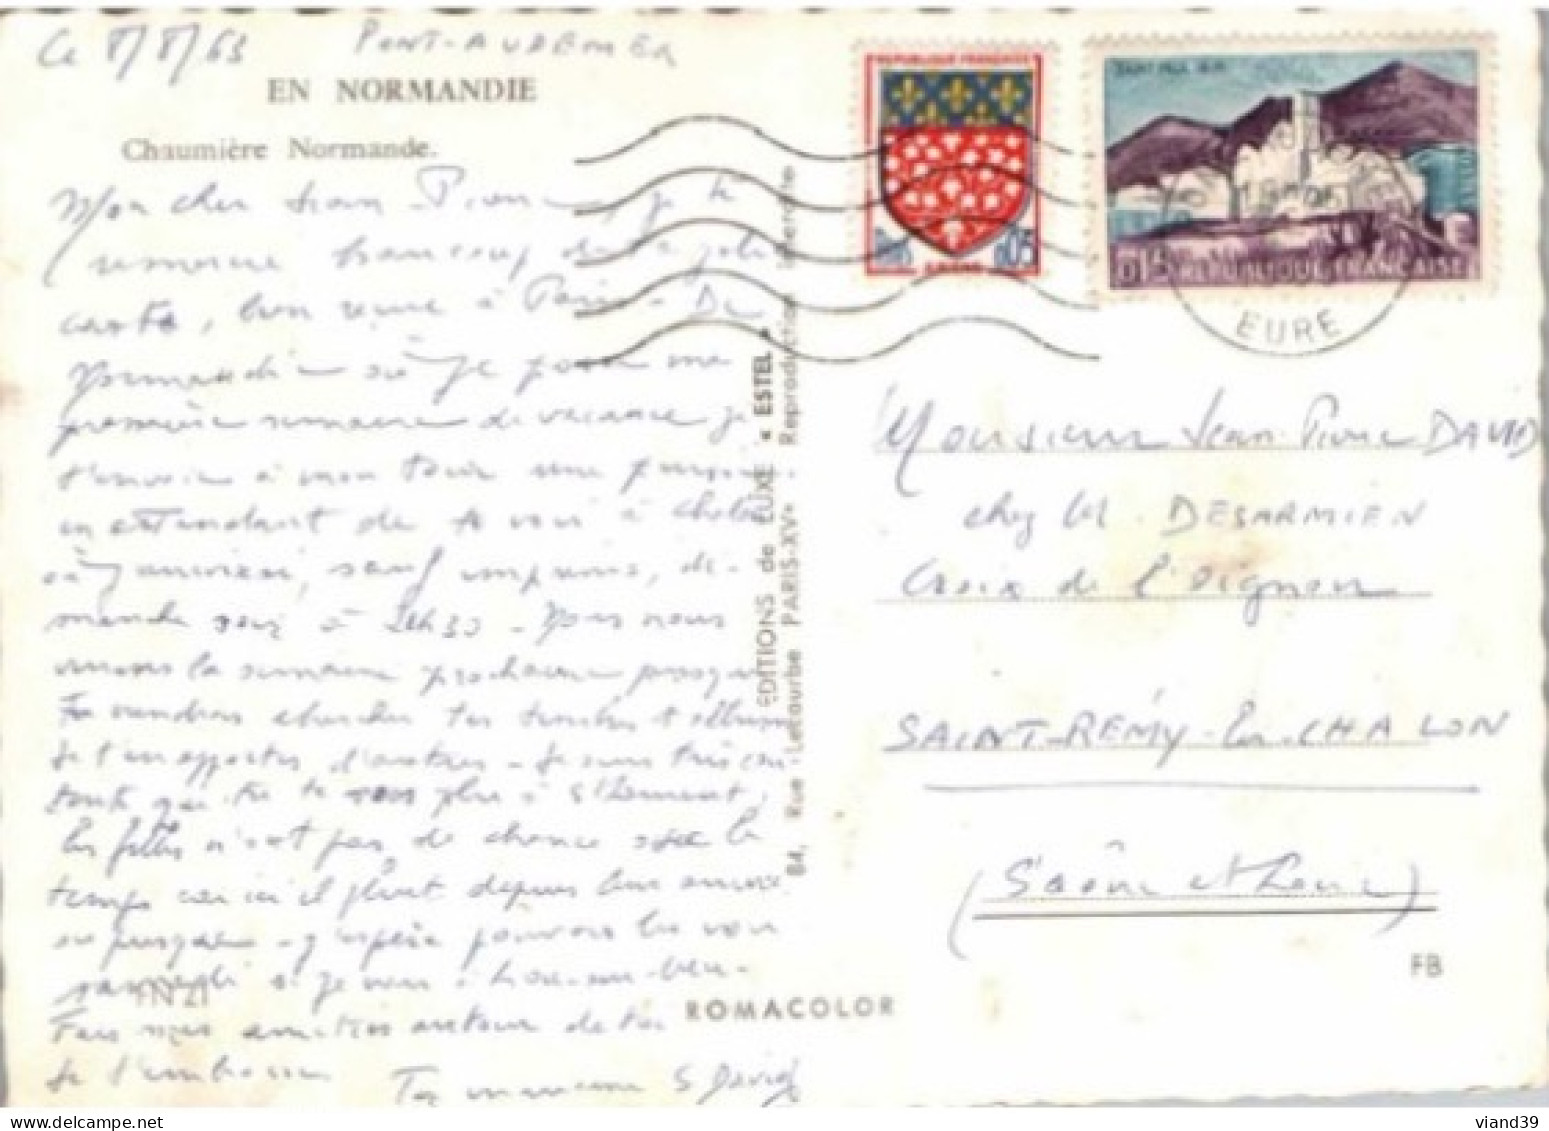 Ce 8/8/63 PONT-AUDEMER
EN NORMANDIE
Chaumière Normande.
Mon cher Jean-Pierre, je te
remercie beaucoup de ta jolie
carte, bien reçue à Paris - De
Normandie où je passe ma
première semaine de vacance je
t'envoie à mon tour une
en attendant de te voir à
où j'arriverai, sauf imprévu, di-
manche soir à 20h30 - Nous nous
la semaine prochaine puisque
Tu viendras chercher tes timbres & album
Je t'en apporterai d'autres - Je suis très con-
tente que tu te plaises à St Clément
les filles n'ont pas de chance avec le
temps car ici il pleut depuis leur arrivée
ou presque - J'espère pouvoir les voir
samedi si je vais à
Fais mes amitiés autour de toi
Je t'embrasse Ta marraine S David
FN 21
REPUBLIQUE FRANÇAISE
0,05
AMIENS
0,15 REPUBLIQUE FRANÇAISE
EURE
EDITIONS de LUXE « ESTEL »
84, Rue Lecourbe PARIS-XV° Reproduction Interdite
Monsieur Jean-Pierre DAVID
chez M. DESARMIEN
Croix de l'Oignon
SAINT-RÉMY-les-CHALON
(Saône et Loire)
FB
ROMACOLOR
viand39